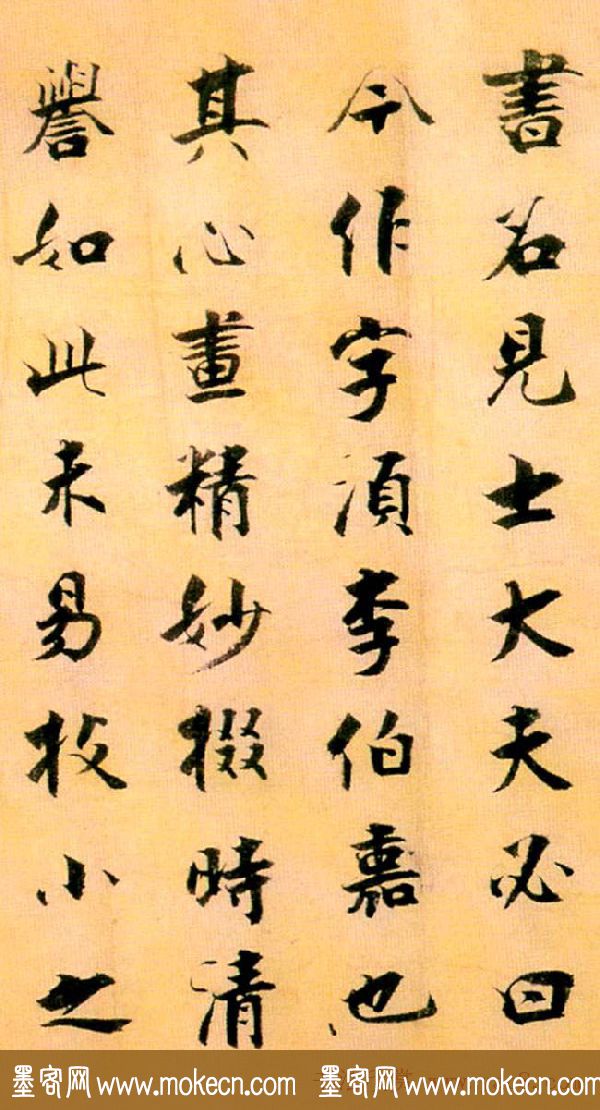 書名見士大夫必曰
今作字須李伯嘉也
其心畫精妙掇時清
譽如此未易枚小之
墨客网 www.mokecn.com 墨客网 www.mokecn.com